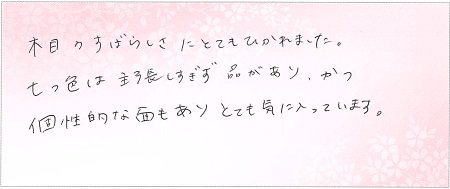 木目のすばらしさにとてもひかれました。
七つ色は主張しすぎず品があり、かつ
個性的な面もありとても気に入っています。